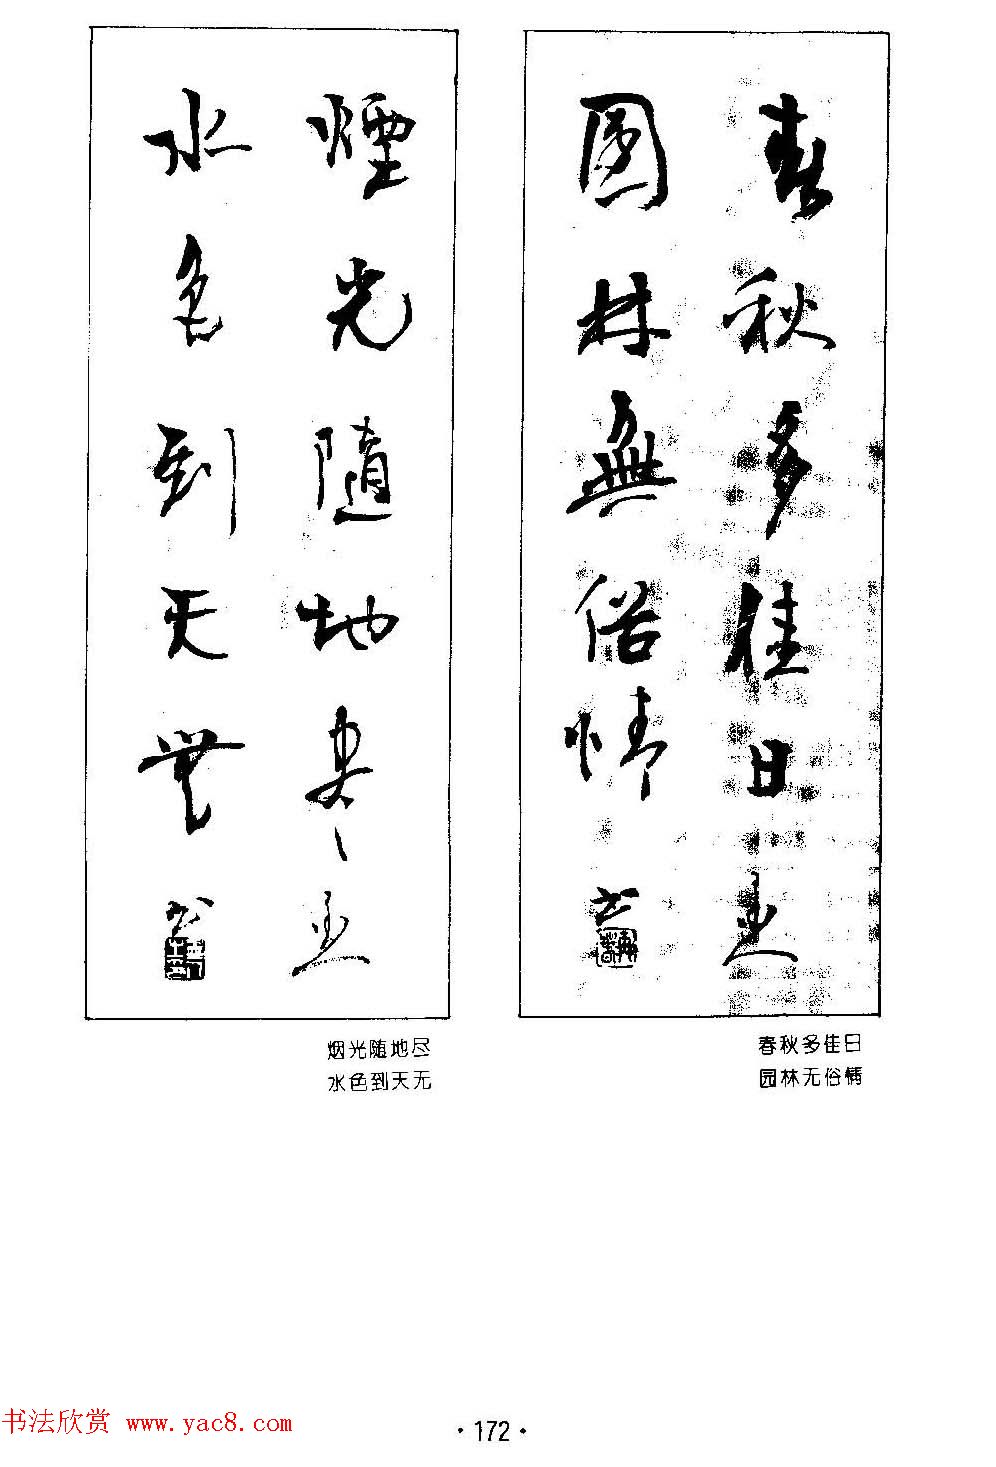 春秋多佳日
園林無俗情
春秋多佳日
园林无俗情
煙光随地尽
水色到天無
书
烟光随地尽
水色到天无
书法欣赏 www.yac8.com
·172·